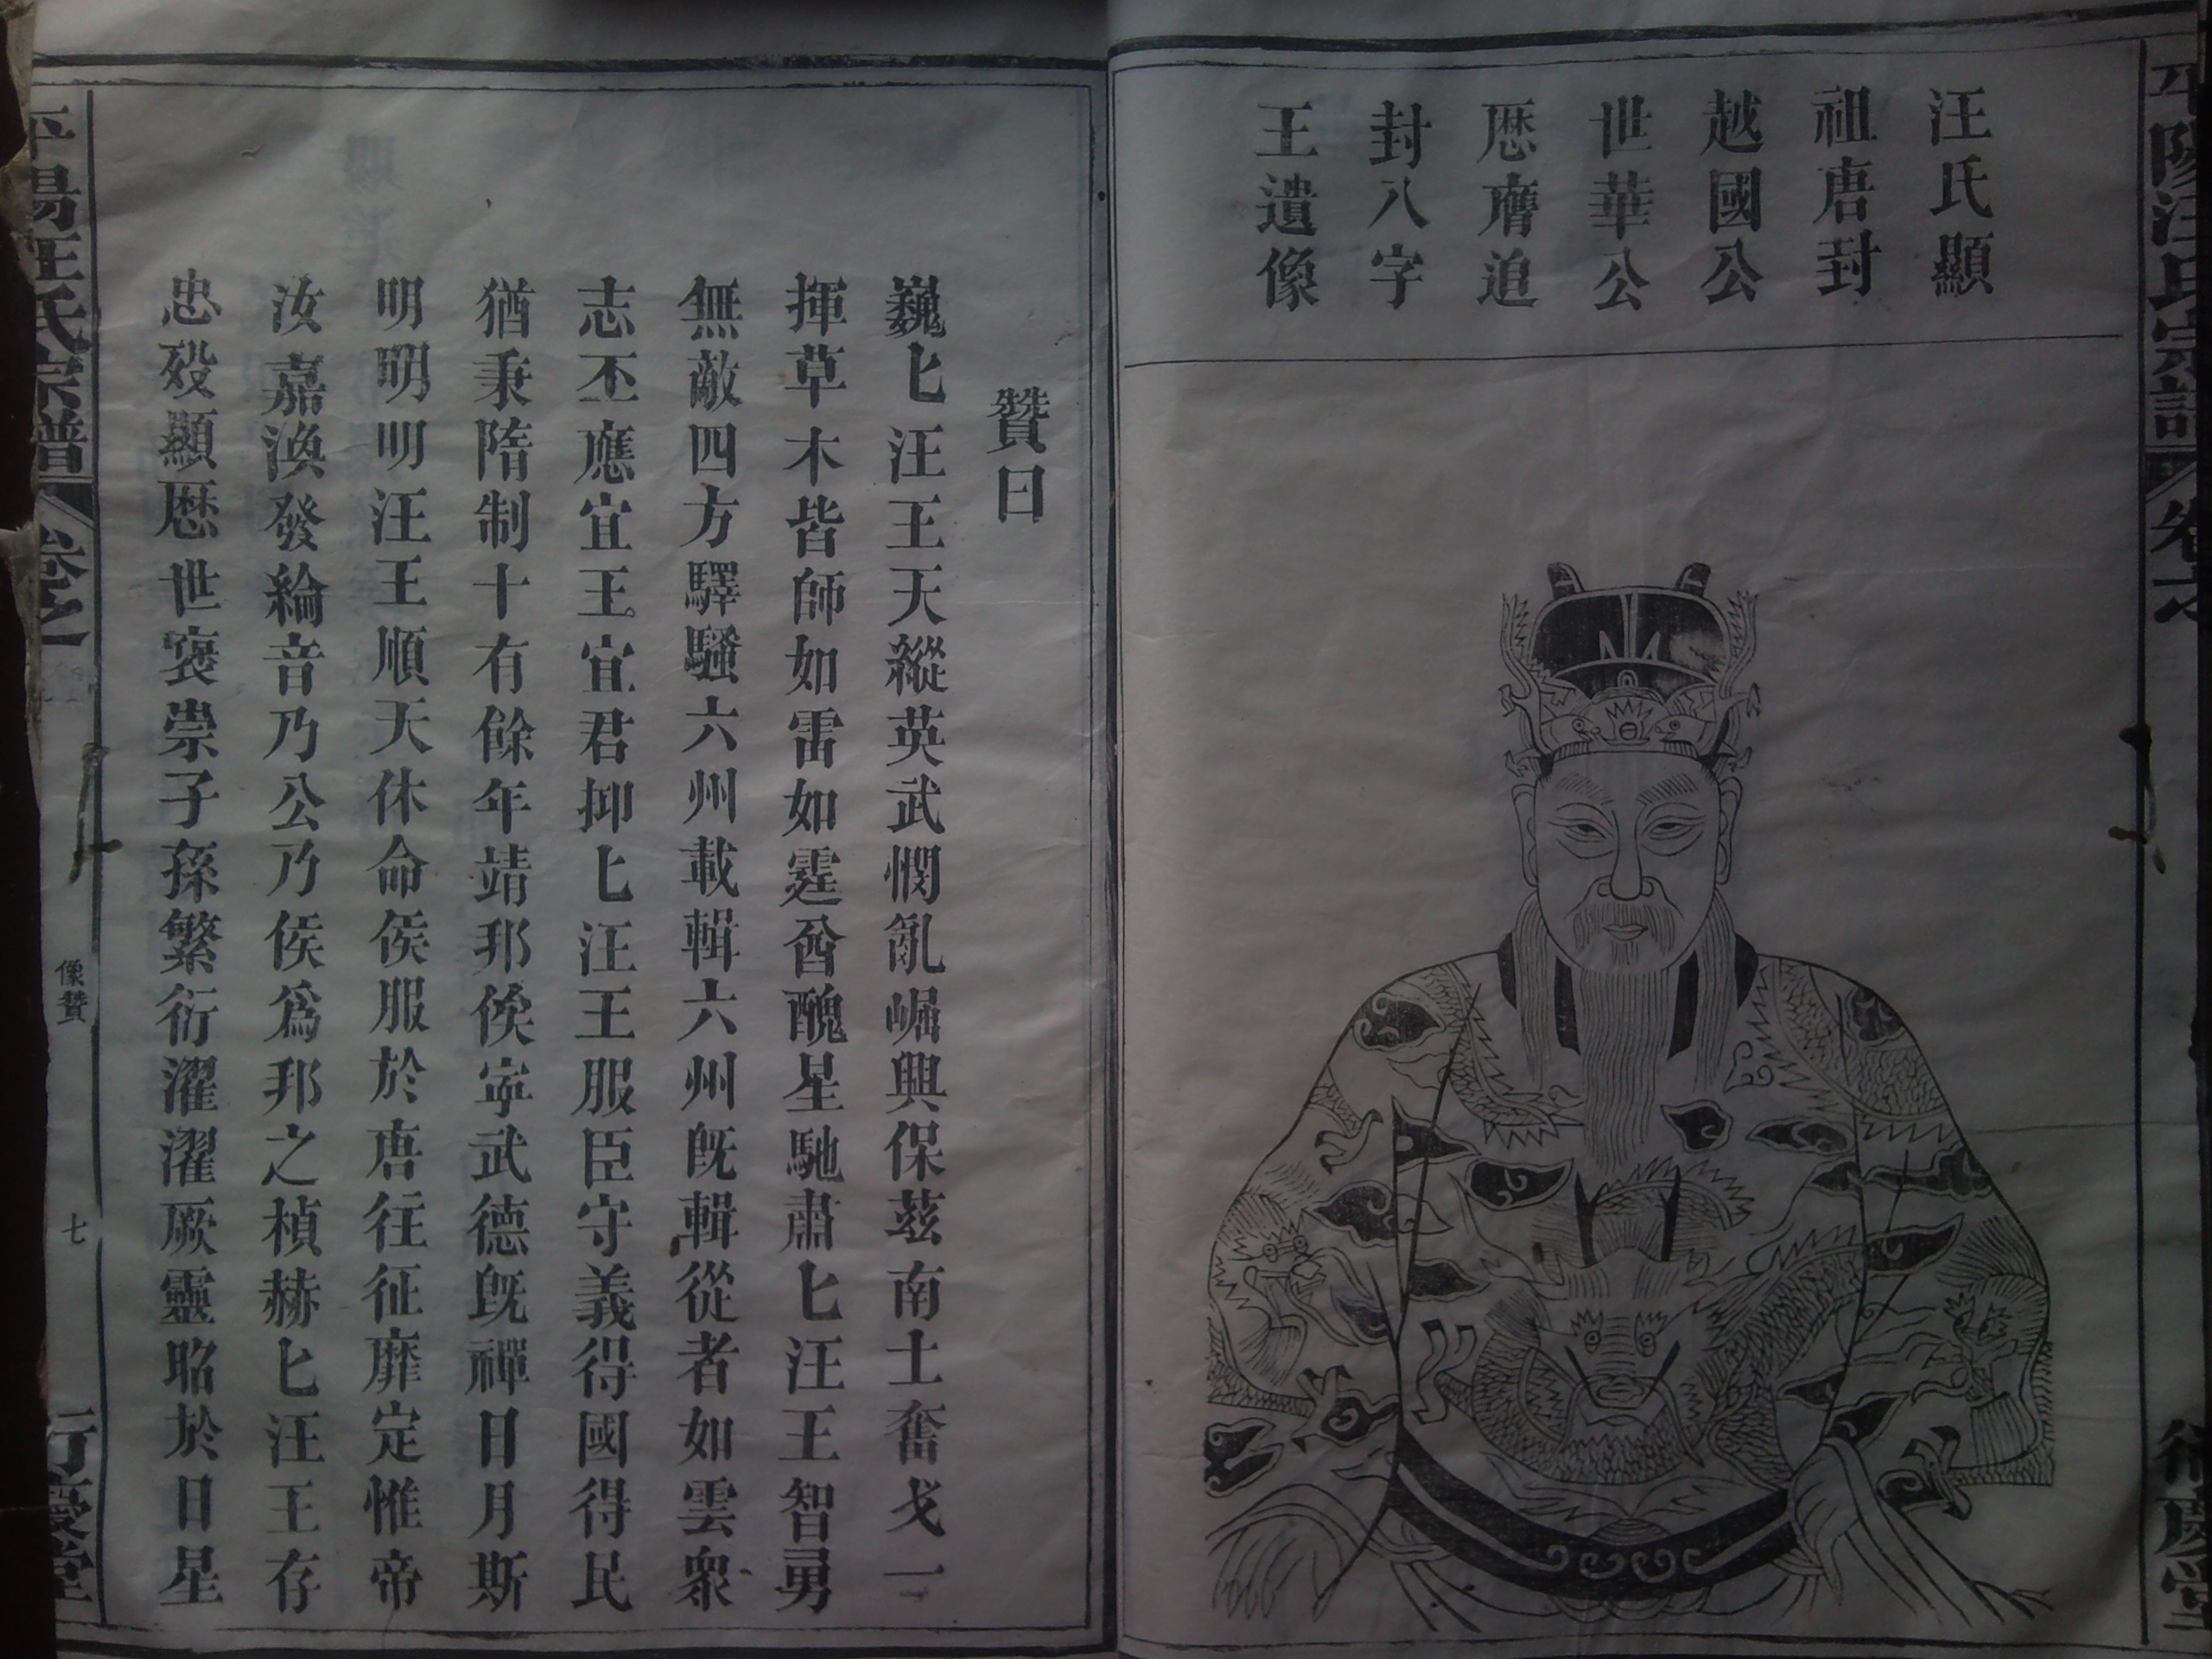 平陽汪氏宗譜
卷之
衍慶堂
汪氏顯
祖唐封
越國公
世華公
厯膺追
封八字
王遺像
贊曰
巍匕汪王天縱英武憫亂崛興保茲南土奮戈一
揮草木皆師如雷如霆酋醜星馳肅匕汪王智勇
無敵四方驛騷六州載輯六州旣輯從者如雲衆
志丕應宜王宜君抑匕汪王服臣守義得國得民
猶秉隋制十有餘年靖邦俟寧武德旣禪日月斯
明明明汪王順天休命侯服於唐往征靡定惟帝
汝嘉渙發綸音乃公乃侯爲邦之楨赫匕汪王存
忠殁顯厯世褒崇子孫繁衍濯濯厥靈昭於日星
平陽汪氏宗譜
卷之
像贊
七
衍慶堂